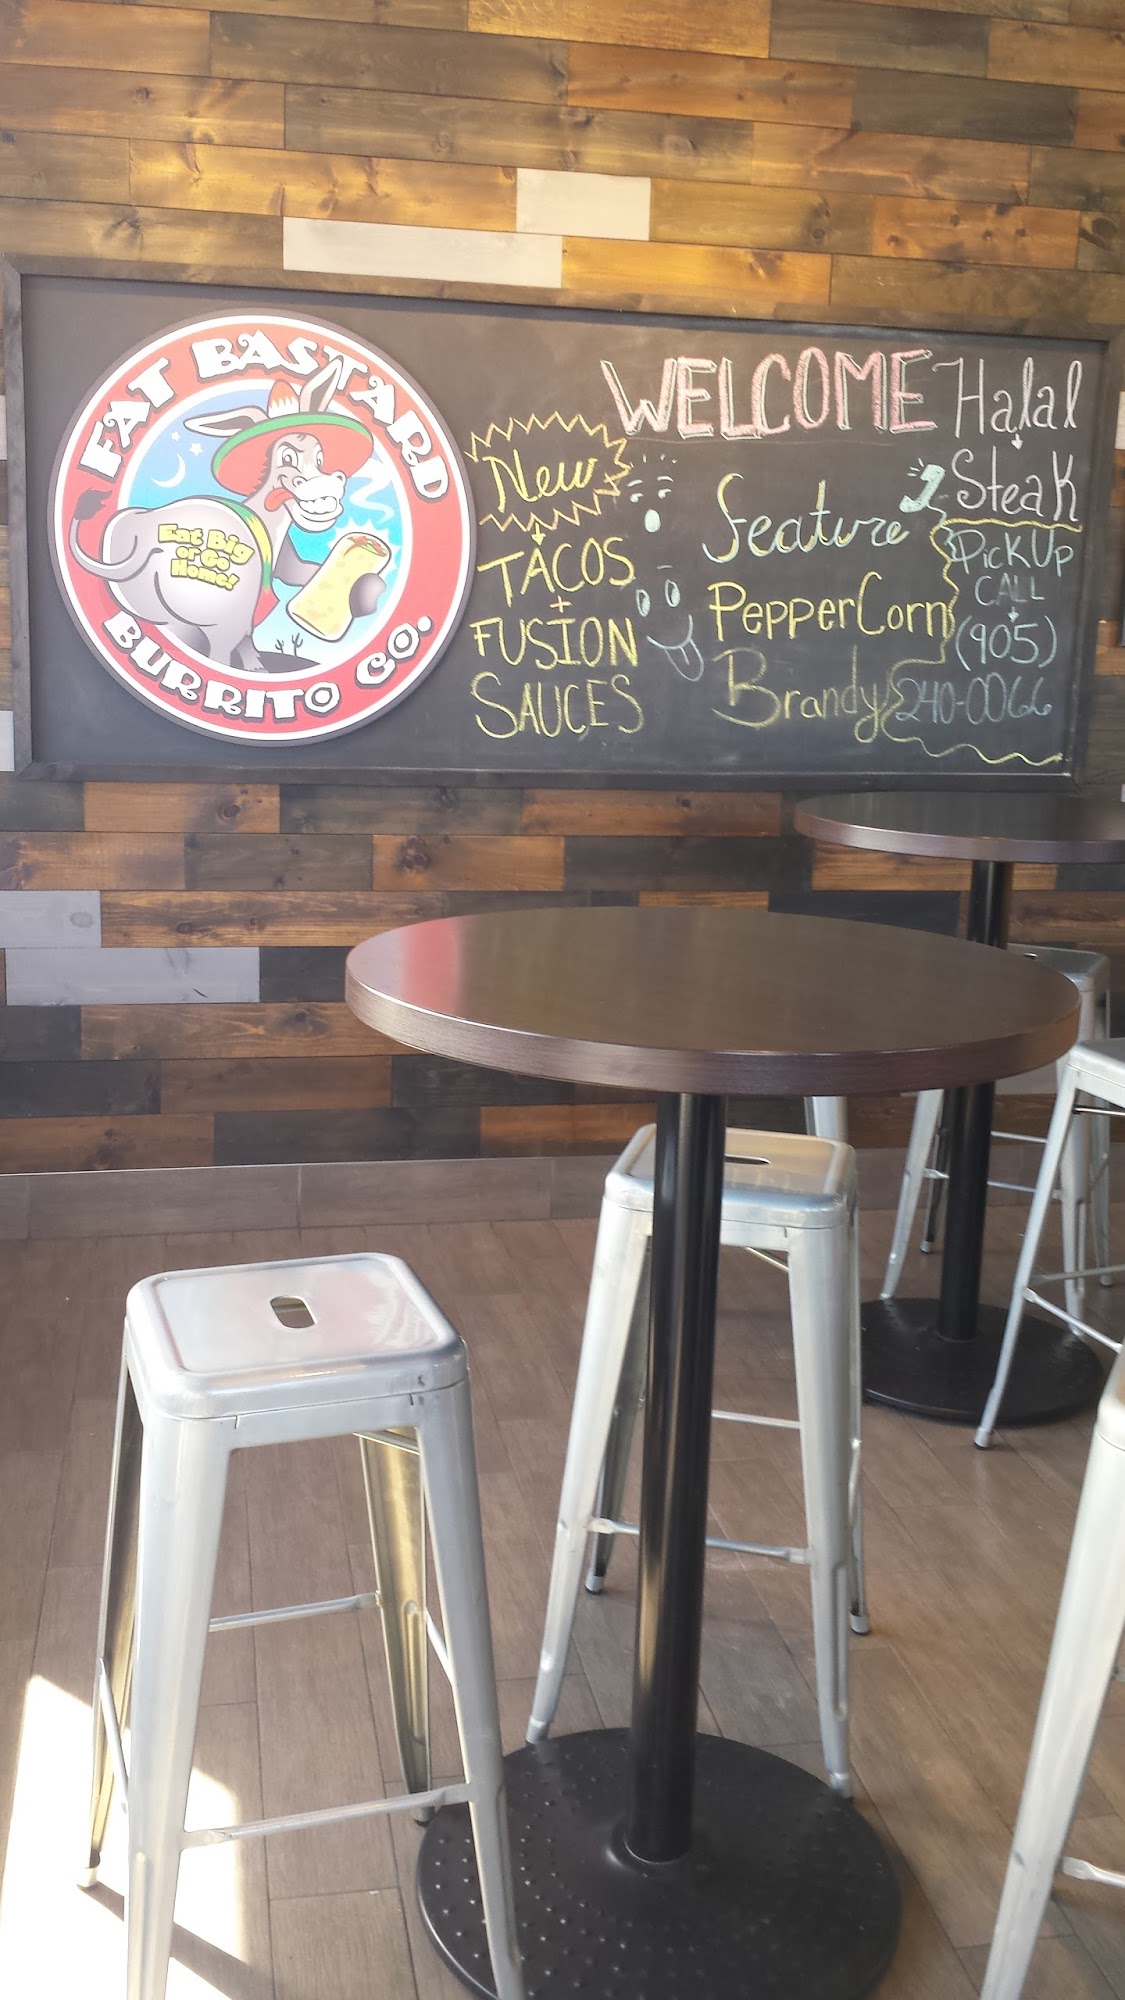 FAT BASTARD
BURRITO CO.
Eat Big
or Go
Home!
New
TACOS
+
FUSION
SAUCES
WELCOME
Feature
PepperCorn
Brandy
Halal
Steak
PickUp
CALL
(905)
240-0066